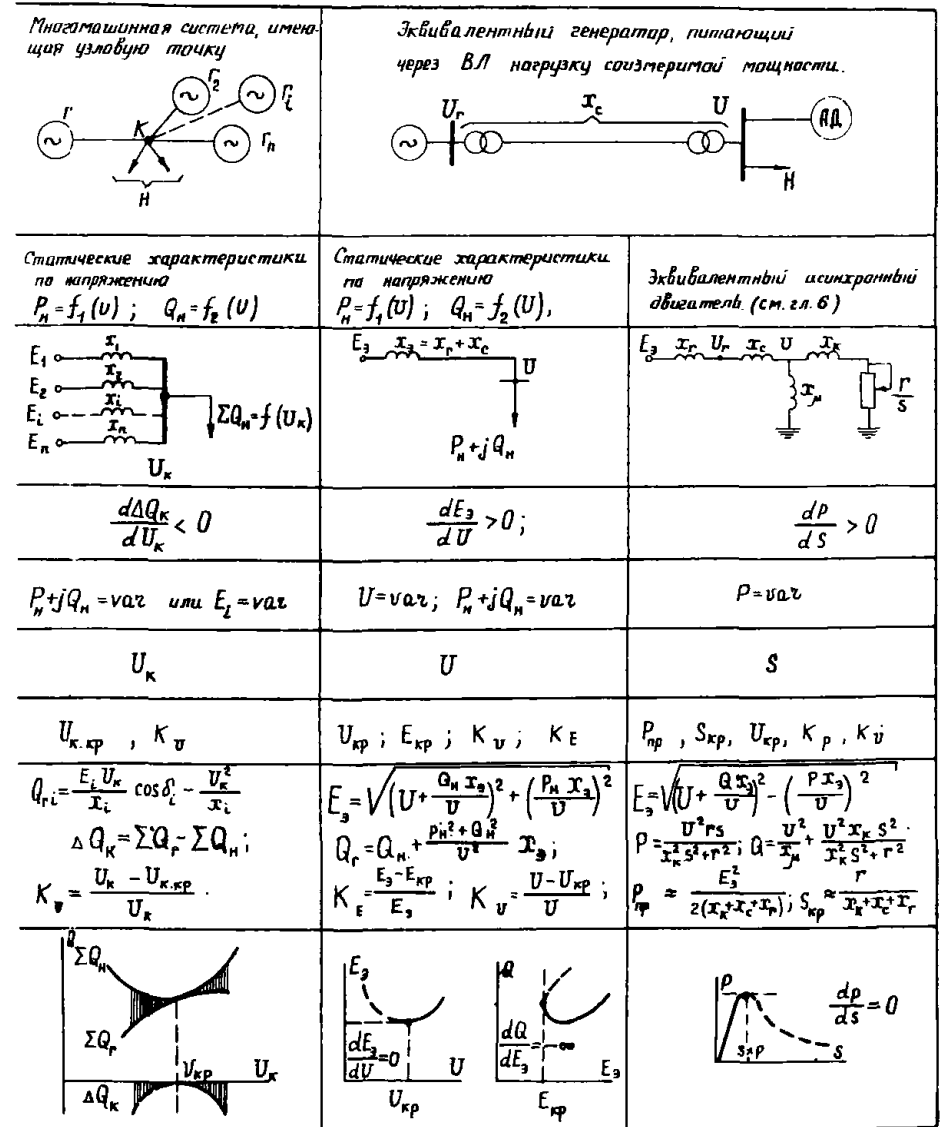 Многомашинная система, имею-
щая узловую точку
Г
К
Г₂
Г_i
Г_n
Н
Эквивалентный генератор, питающий
через ВЛ нагрузку соизмеримой мощности.
U_г
x_c
U
АД
Н
Статические характеристики
по напряжению
P_н = f₁(U) ; Q_н = f₂(U)
Статические характеристики
по напряжению
P_н = f₁(U) ; Q_н = f₂(U),
Эквивалентный асинхронный
двигатель. (см. гл. 6)
E₁ x₁
E₂ x₂
E_i x_i
E_n x_n
ΣQ_н = f(U_к)
U_к
E_э x_э = x_г + x_c
U
P_н + jQ_н
E_э x_г U_г x_c U x_к
x_μ
r/s
dΔQ_к/dU_к < 0
dE_э/dU > 0;
dP/dS > 0
P_н + jQ_н = var или E_i = var
U = var; P_н + jQ_н = var
P = var
U_к
U
S
U_к.кр , K_U
U_кр ; E_кр ; K_U ; K_E
P_пр , S_кр, U_кр, K_P, K_U
Q_гi = E_i U_к/x_i cos δ_i − U_к²/x_i
ΔQ_к = ΣQ_г − ΣQ_н ;
K_U = U_к − U_к.кр/U_к .
E_э = √(U + Q_н x_э/U)² + (P_н x_э/U)²
Q_г = Q_н + P_н² + Q_н²/U² x_э ;
K_E = E_э − E_кр/E_э ; K_U = U − U_кр/U ;
E_э = √(U + Q x_э/U)² − (P x_э/U)²
P = U² r s/x_к² s² + r² ; Q = U²/x_μ + U² x_к s²/x_к² s² + r² .
P_пр ≈ E_э²/2(x_к + x_c + x_г) ; S_кр ≈ r/x_к + x_c + x_г
Q
ΣQ_н
ΣQ_г
U_кр
U_к
ΔQ_к
E_э
dE_э/dU = 0
U
U_кр
Q
dQ/dE_э = −∞
E_э
E_кр
P
dp/ds = 0
sкр
S